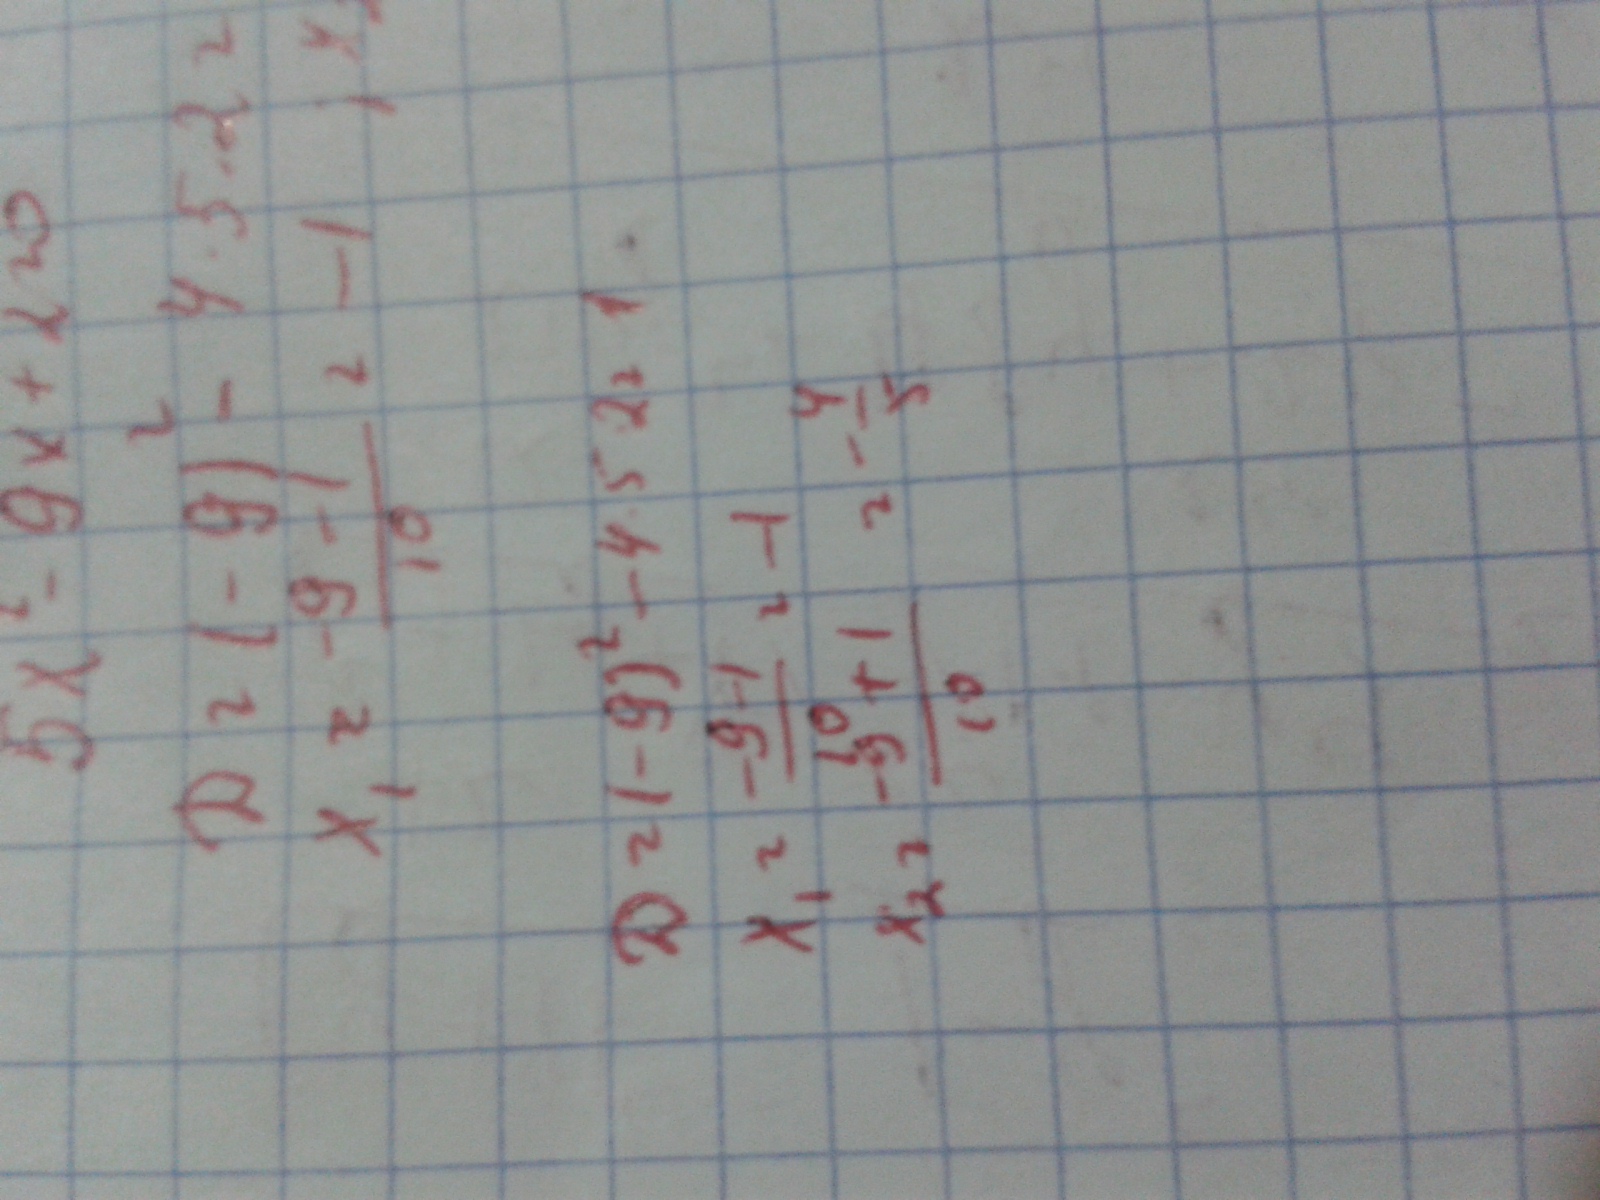 5x² - 9x + 2 = 0
D = (-9)² - 4·5·2 =
x₁ = (-9-1)/10 = -1, x
D = (-9)² - 4·5·2 = 1
x₁ = (-9-1)/10 = -1
x₂ = (-9+1)/10 = -4/5